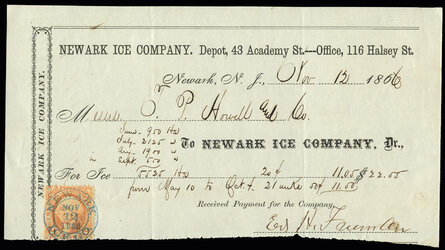 NEWARK ICE COMPANY. Depot, 43 Academy St.—Office, 116 Halsey St.
Newark, N. J., Nov 12 1866
NEWARK ICE COMPANY.
Messrs O. P. Howell and Co
June - 950 lbs
July - 2125 "
Aug. 1900 "
Sept. 550 "
To NEWARK ICE COMPANY, Dr.,
For Ice 5525 lbs 20¢ 11.05 $22.55
from May 10 to Oct 11.50
Received Payment for the Company,
NOV
12